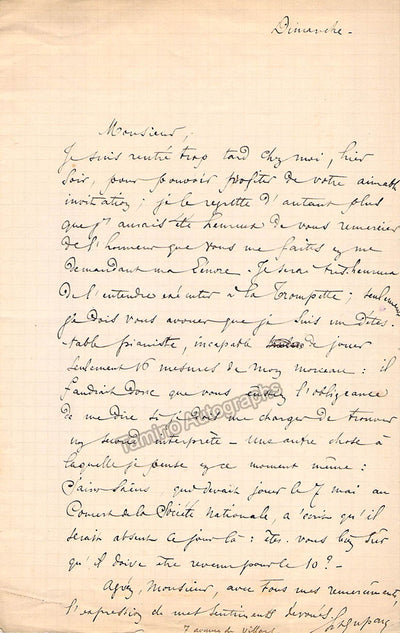 Dimanche -
Monsieur,
Je suis rentré trop tard chez moi, hier
soir, pour pouvoir profiter de votre aimable
invitation ; je le regrette d'autant plus
que j'aurais été heureux de vous remercier
de l'honneur que vous me faites en me
demandant ma Lénore. Je serai très heureux
de l'entendre exécuter à la Trompette ; seulement
je dois vous avouer que je suis un détes-
table pianiste, incapable de jouer
seulement 16 mesures de mon morceau : il
faudrait donc que vous eussiez l'obligeance
de me dire si je dois me charger de trouver
un second interprète - une autre chose à
laquelle je pense en ce moment même :
Saint Saëns, qui devait jouer le 7 mai au
Concert de la Société Nationale, a écrit qu'il
serait absent ce jour-là : êtes-vous bien sûr
qu'il doive être revenu pour le 10 ? -
Agréez, Monsieur, avec tous mes remerciements,
l'expression de mes sentiments dévoués
H Duparc
7 avenue de Villars
Tamino Autographs